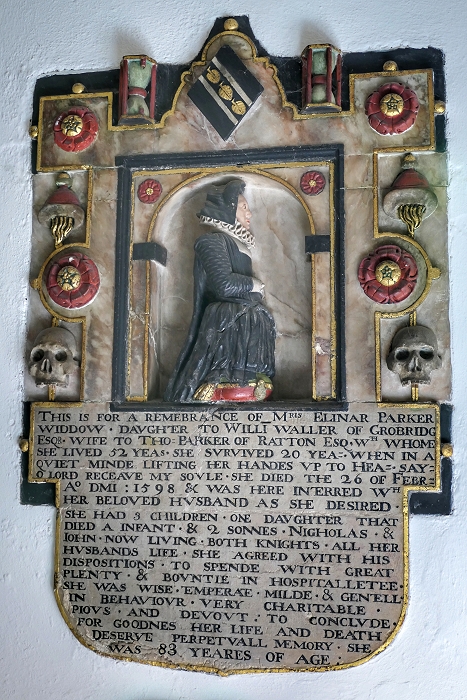 THIS IS FOR A REMEMBRANCE OF MRIS ELINAR PARKER
WIDDOW · DAVGHTER TO WILLI WALLER OF GROBRIDG
ESQR · WIFE TO THO: PARKER OF RATTON ESQ · WTH WHOME
SHE LIVED 52 YEAS · SHE SURVIVED 20 YEA= WHEN IN A
QVIET MINDE LIFTING HER HANDES VP TO HEA= SAY=
O LORD RECEAVE MY SOVLE · SHE DIED THE 26 OF FEBR=
AO DMI : 1598 & WAS HERE INTERRED WTH
HER BELOVED HVSBAND AS SHE DESIRED
SHE HAD 3 CHILDREN · ONE DAVGHTER THAT
DIED A INFANT · & 2 SONNES · NICHOLAS · &
IOHN · NOW LIVING · BOTH KNIGHTS · ALL HER
HVSBANDS LIFE · SHE AGREED WITH HIS
DISPOSITIONS · TO SPENDE WITH GREAT
PLENTY · & BOVNTIE IN HOSPITALLETEE ·
SHE WAS WISE · TEMPERAE · MILDE · & GENELL
IN BEHAVIOVR · VERY CHARITABLE
PIOVS · AND DEVOVT : TO CONCLVDE
FOR GOODNES HER LIFE AND DEATH
DESERVE PERPETVALL MEMORY · SHE
WAS 83 YEARES OF AGE :